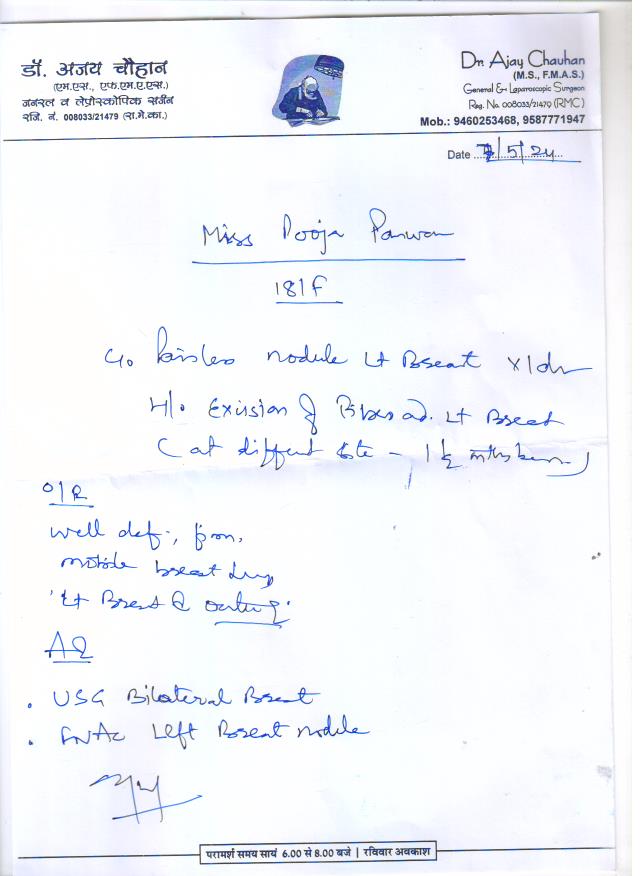 डॉ. अजय चौहान
(एम.एस., एफ.एम.ए.एस.)
जनरल व लेप्रोस्कोपिक सर्जन
रजि. नं. 008033/21479 (रा.मे.का.)
Dr. Ajay Chauhan
(M.S., F.M.A.S.)
General & Laparroscopic Surgeon
Reg. No. 008033/21479 (RMC)
Mob.: 9460253468, 9587771947
Date 7/5/24
Miss Pooja Panwar
18/F
C/o Painless nodule Lt Breast x 1d
H/o Excision of Fibroad. Lt Breast
(at different site - 1½ mths
O/E
well def., firm,
mobile breast lump
Lt Breast
Ad
. USG Bilateral Breast
. FNAC Left Breast nodule
परामर्श समय सायं 6.00 से 8.00 बजे | रविवार अवकाश